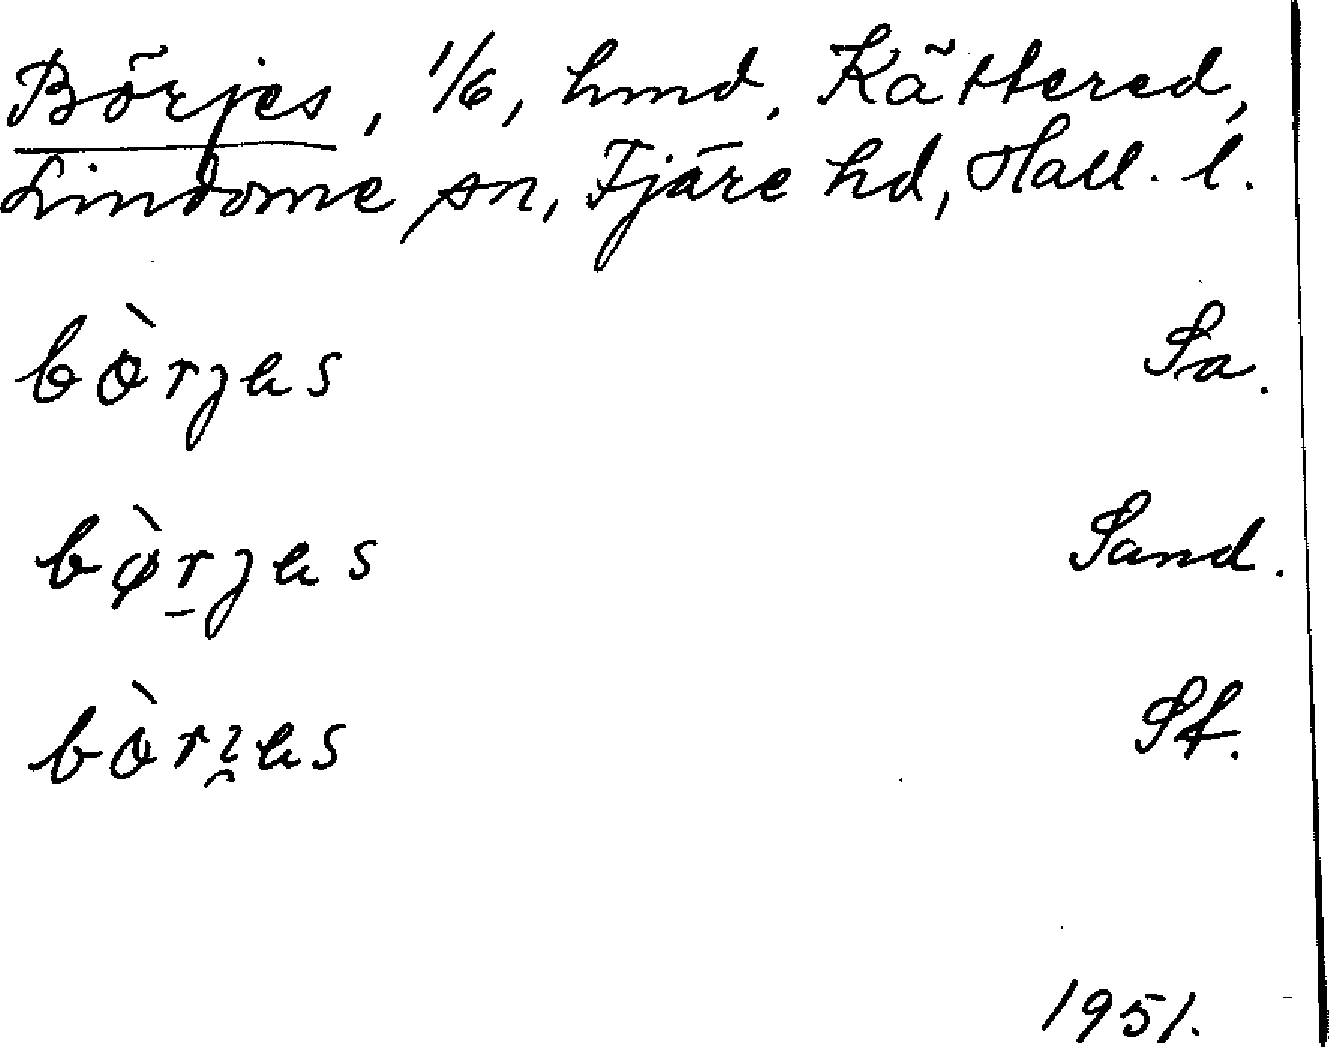 Börjes, 1/6, hmd. Kättered,
Lindome sn, Fjäre hd, Hall. l.
bòrjas Sa.
bø̀rjas Sand.
bòras St.
1951.